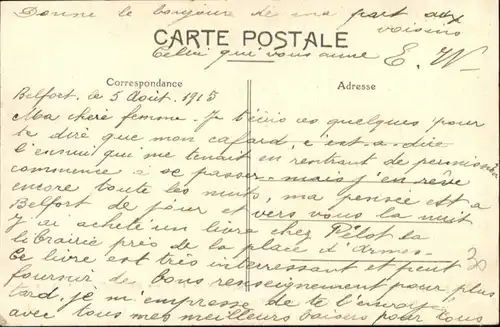 Donne le bonjour de ma part aux
voisins
CARTE POSTALE
Celui qui vous aime E. W
Correspondance
Adresse
Belfort, le 5 Août 1915
Ma chère femme. Je t'écris ces quelques pour
te dire que mon cafard, c'est-a-dire
l'ennui qui me tenait en rentrant de permission
commence a se passer mais j'en rêve
encore toute les nuits, ma pensee est a
Belfort de jour et vers vous la nuit
J'ai acheté un livre chez Pélot la
librairie près de la place d'Armes
Ce livre est très interressant et peut
fournir de bons renseignement pour plus
tard, je m'empresse de te l'envoi
avec tous mes meilleurs baisers pour tous